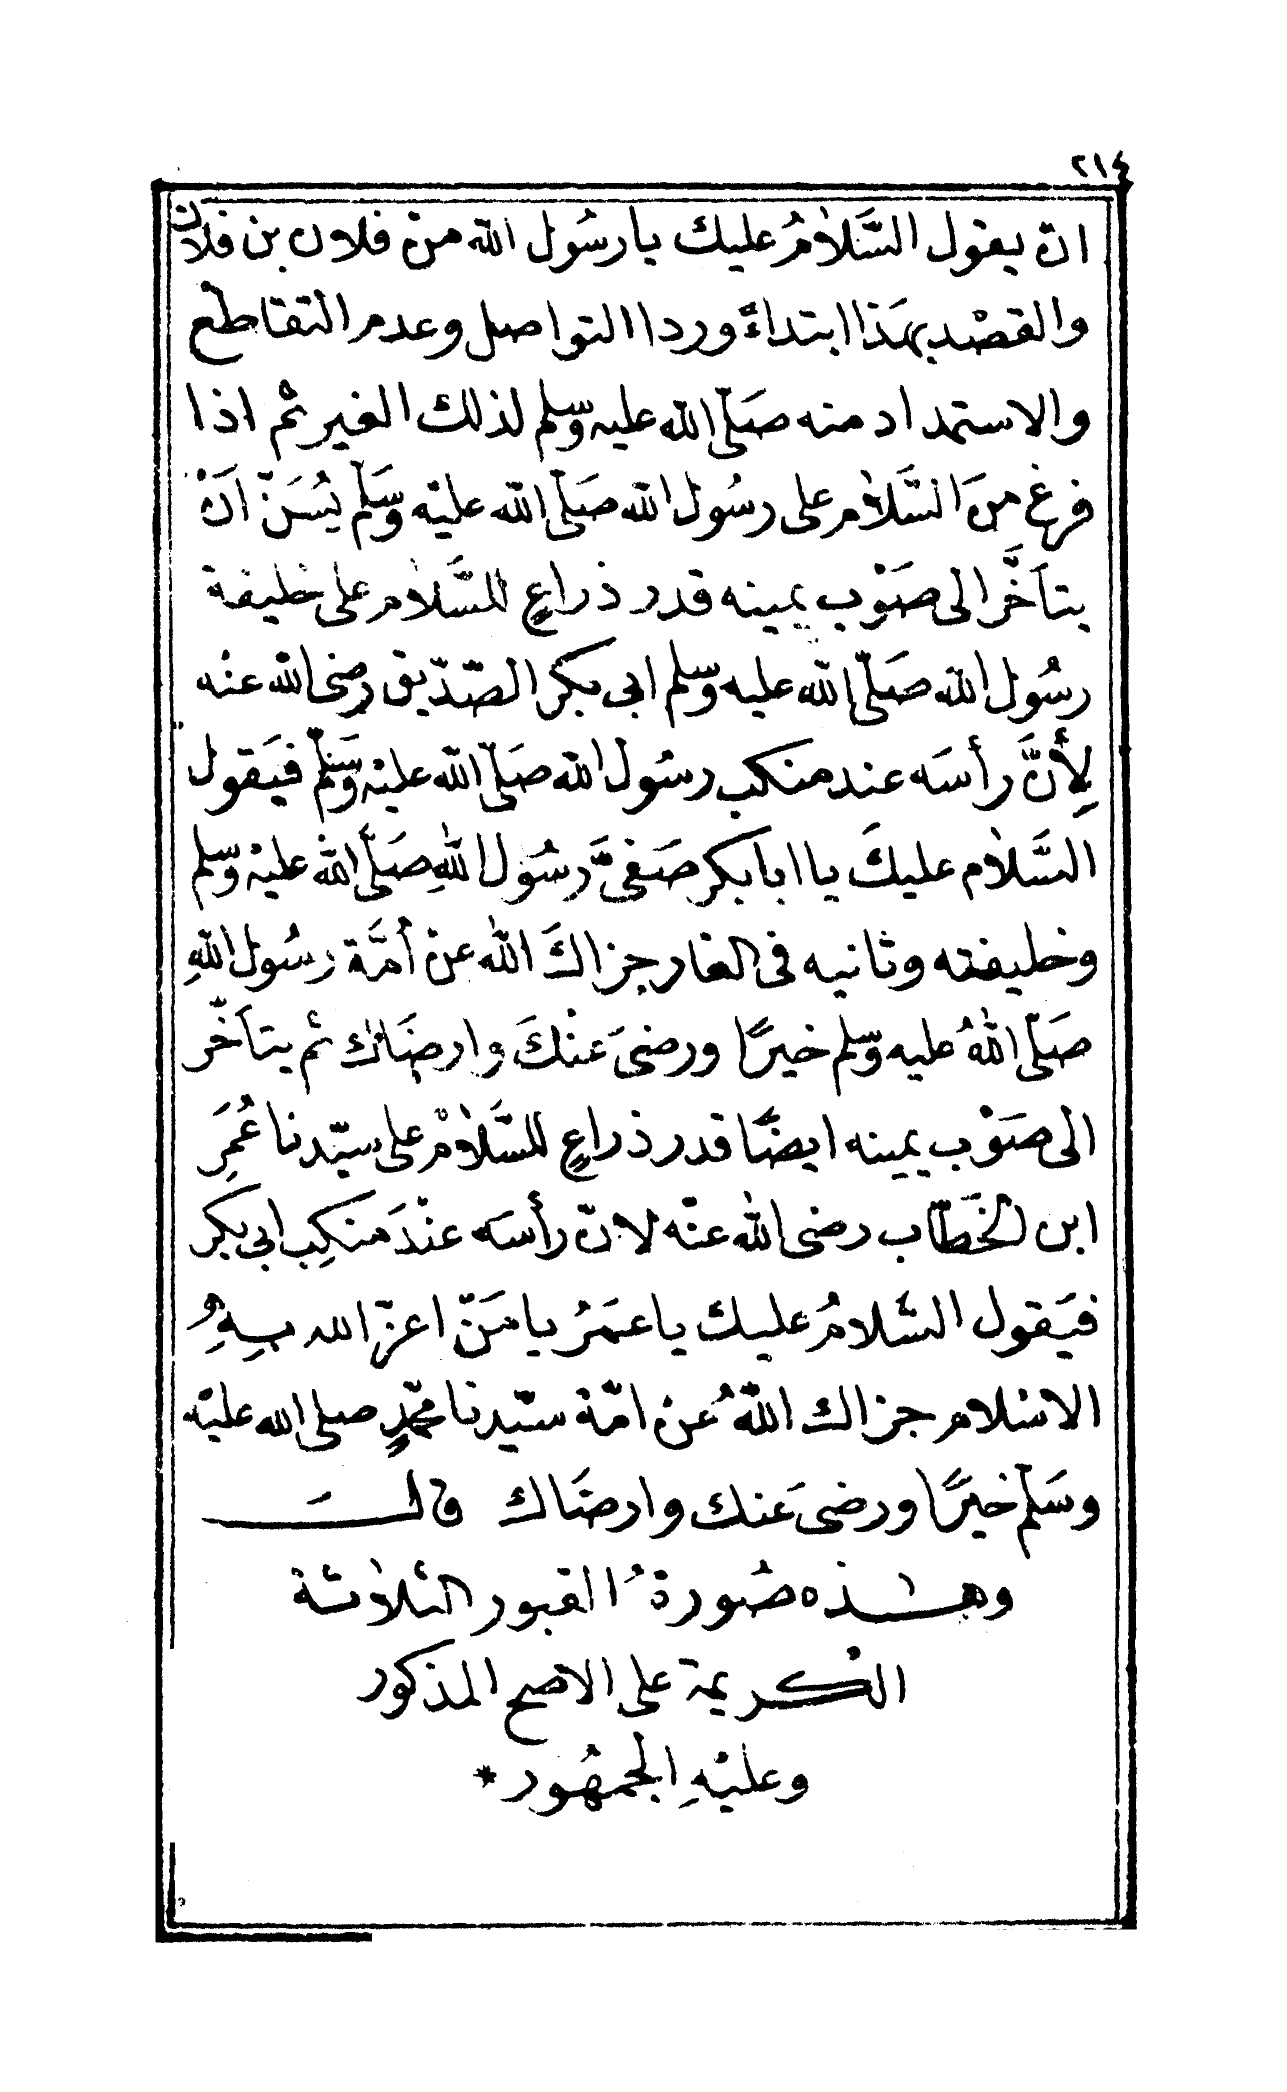 ٢١٤
ان يقول السَّلَامُ عليك يا رسُول الله من فلان بن فلان
والقصْد بهَذا ابتداءً وردا التواصل وعدم التقاطع
والاستمداد منه صَلّى الله عليه وسّلم لذلك الغير ثم اذا
فرغ منَ السَّلام على رسُول الله صَلّى الله عليْه وَسَّلم يُسَنّ انْ
يتأخَّر الى صَوْب يمينه قدر ذراعٍ للسَّلام على خليفة
رسُول الله صَلّى الله عليه وسّلم ابى بكر الصّدّيق رضى الله عنْه
لِأَنَّ رأسَه عند منكب رسُول الله صَلّى الله عليْه وَسَّلم فيَقول
السَّلام عليكَ يا ابا بكر صَفىَّ رسُول اللهِ صَلّى الله عليْه وسّلم
وخليفته وثانيه فى الغار جزاكَ الله عنْ أمَّة رسُول اللهِ
صَلّى اللهُ عليه وسّلم خيرًا ورضىَ عنْكَ وارضَاك ثم يتأخّر
الى صَوْب يمينه ايضًا قدر ذراعٍ للسَّلامْ على سيّدنا عُمَرِ
ابن الخَطّاب رضى الله عنْه لانّ رأسَه عنْدَ منكِب ابى بكر
فيَقول السّلامُ عليك يا عمَرُ يا مَنْ اعزّ الله بِهِ
الاسْلام جزاك اللهُ عنْ امّة سيّدنا محمّدٍ صلى الله عليْه
وسَلّم خيرًا ورضىَ عنك وارضَاك قالَ
وهذه صُورةُ القبور الثلاثة
الكريمة على الاصح المذكور
وعليْهِ الجمهُور *